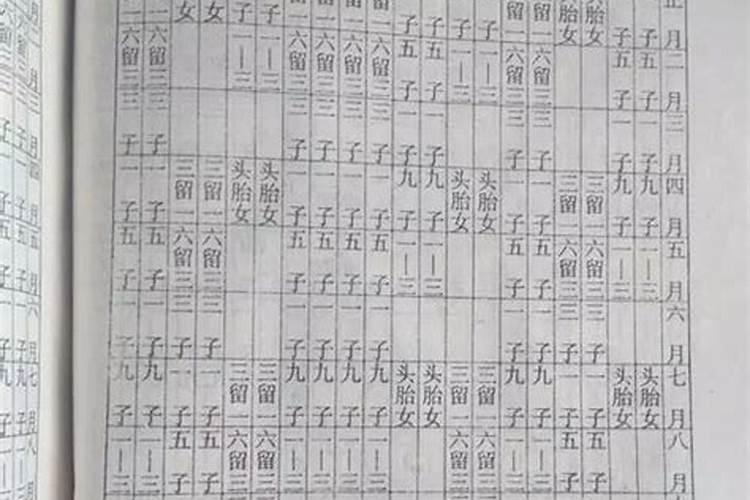 月二月三月四月五月六月七月八月
子五子一子九子一|三头胎女
子五子一子九子一|三头胎女
胎女三留一六留三三子一子五子
胎女三留一六留三三子一子五子
留一六留三三子一子五子一子九子一|三
留一六留三三子一子五子一子九子一|三
子一|三头胎女三留一六留三
子一|三头胎女三留一六留三
子五子一子九子一|三头胎女
子五子一子九子一|三头胎女
一六留三三子一子五子一子九子一|三
一六留三三子一子五子一子九子一|三
一六留三三子一子五子一子九子一|三
一六留三三子一子五子一子九子一|三
子一|三头胎女三留一六留三
子一|三头胎女三留一六留三
女三留一六留三三子一子五子
女三留一六留三三子一子五子
一六留三三子一子五子一子九子一|三
一六留三三子一子五子一子九子一|三